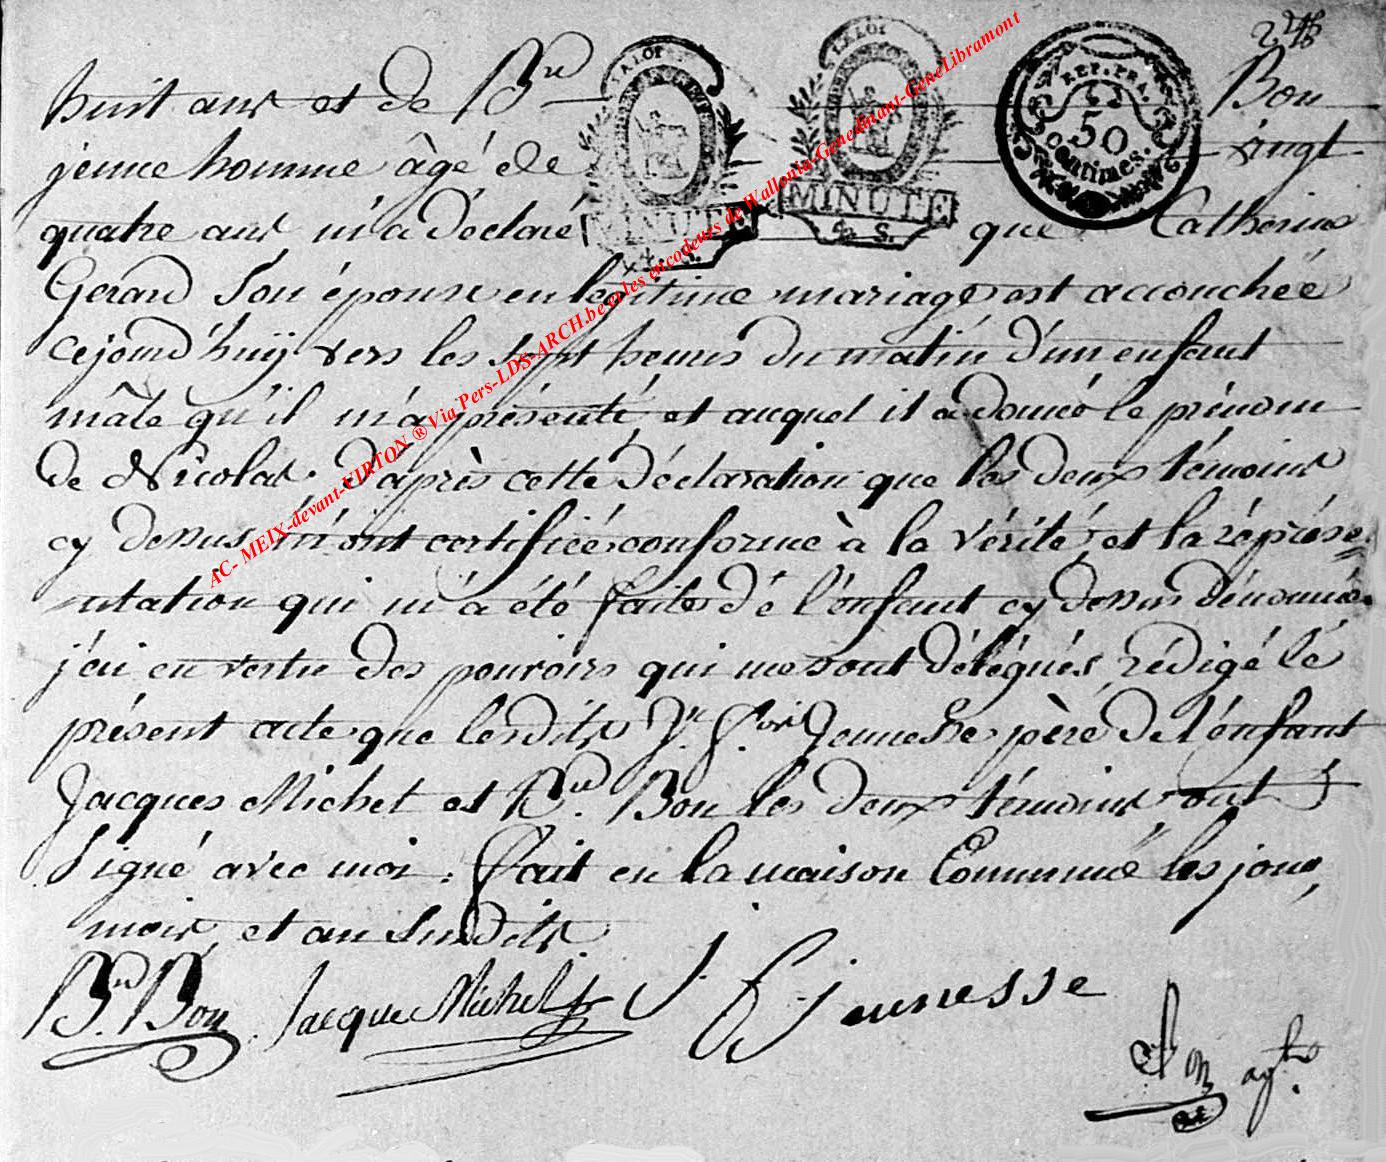 huit ans et de Brd Bon
jeune homme âgé de vingt
quatre ans m'a déclaré que Catherine
Gerard son épouse en legitime mariage est accouchée
cejourd'huy vers les sept heures du matin d'un enfant
mâle qu'il m'a présenté et auquel il a donné le prénom
de Nicolas. D'après cette déclaration que les deux témoins
cy dessus m'ont certifiée conforme à la vérité et la réprése=
-ntation qui m'a été faite dé l'énfant cy dessus dénommé.
j'ai en vertu des pouvoirs qui me sont délégués, rédigé lé
présent acte que lesdits Jn. f.ois Jeunesse père de l'énfant
Jacques Michel et Brd. Bon les deux témoins ont
signé avec moi. fait en la maison Communé les jour,
mois et an susdits
Brd. Bon Jacque Michel J f jeunesse
agt.
LA LOI
MINUTE
LA LOI
MINUTE
REP. FRA.
50
centimes.
AC- MEIX-devant-VIRTON ® Via Pers-LDS-ARCH.be et les encodeurs de Wallonia-Genedinant-GeneLibramont